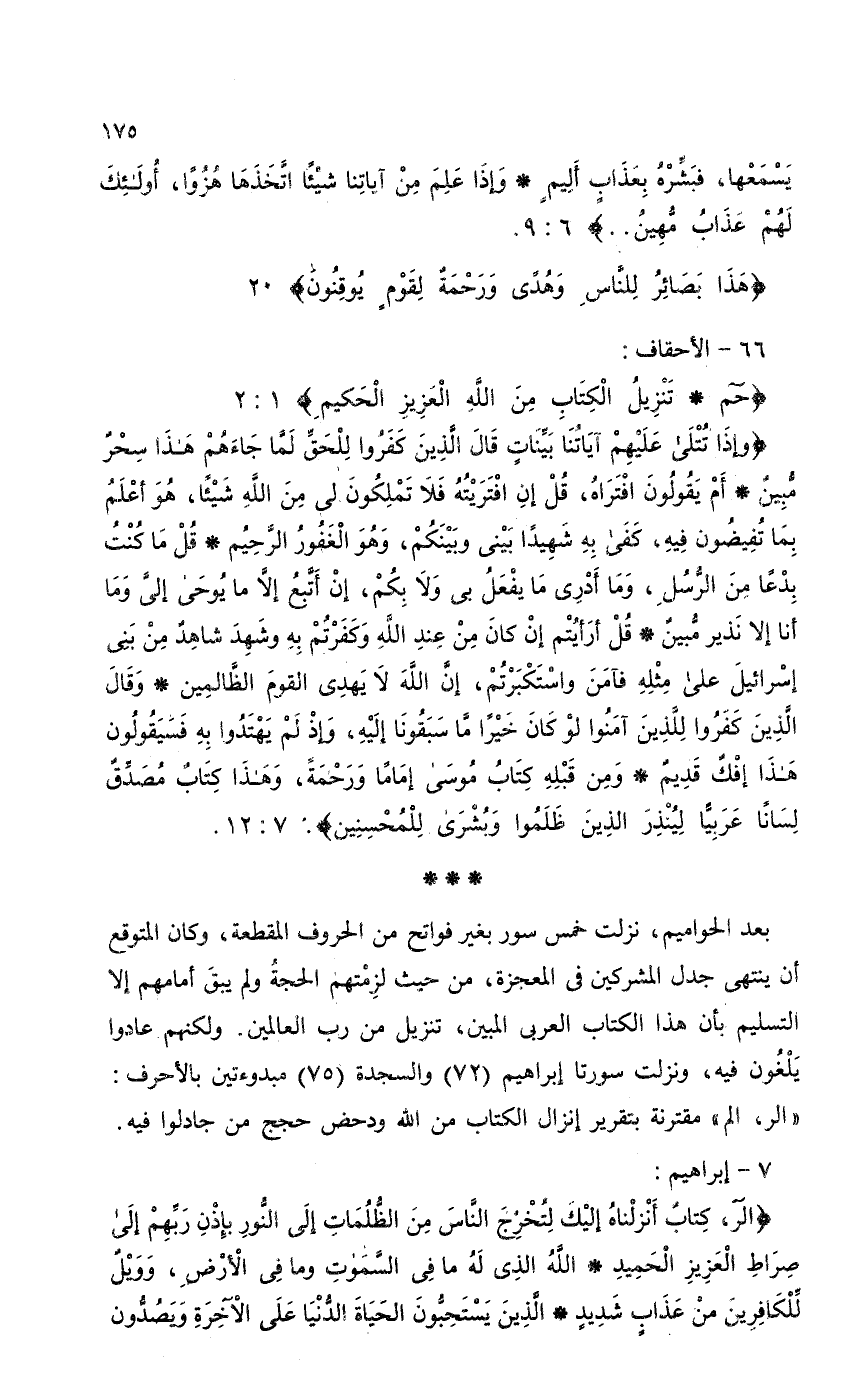 ١٧٥
يَسْمَعْها، فَبَشِّرْهُ بِعَذَابٍ أَلِيمٍ * وَإِذَا عَلِمَ مِنْ آياتِنا شيْئًا اتَّخَذَهَا هُزُوًا، أُولَـٰئِكَ
لَهُمْ عَذَابٌ مُّهِينٌ..﴾ ٦ : ٩.
﴿هَذَا بَصَائِرُ لِلنَّاسِ وَهُدًى وَرَحْمَةٌ لِقَوْمٍ يُوقِنُونَ﴾ ٢٠
٦٦ – الأحقاف :
﴿حَمٓ * تَنْزِيلُ الْكِتَابِ مِنَ اللَّهِ الْعَزِيزِ الْحَكيمِ﴾ ١ : ٢
﴿وإذَا تُتْلَىٰ عَلَيْهِمْ آيَاتُنَا بَيِّنَاتٍ قَالَ الَّذِينَ كَفَرُوا لِلْحَقِّ لَمَّا جَاءَهُمْ هَـٰذَا سِحْرٌ
مُّبِينٌ * أَمْ يَقُولُونَ افْتَرَاهُ، قُلْ إنِ افْتَرَيْتُهُ فَلَا تَمْلِكُونَ لى مِنَ اللَّهِ شَيْئًا، هُوَ أعْلَمُ
بِمَا تُفِيضُون فِيهِ، كَفَىٰ بِهِ شَهِيدًا بَيْنى وبَيْنَكُمْ، وَهُوَ الْغَفُورُ الرَّحِيُم * قُلْ مَا كُنْتُ
بِدْعًا مِنَ الرُّسُلِ، وَمَا أَدْرِى مَا يفْعَلُ بى وَلَا بِكُمْ، إنْ أَتَّبِعُ إلَّا ما يُوحَىٰ إلىَّ وَمَا
أنا إلا نَذير مُّبينٌ * قُلْ أرَأيْتُم إنْ كانَ مِنْ عِندِ اللَّهِ وَكَفَرْتُمْ بِهِ وشَهِدَ شاهِدٌ مِنْ بَنِى
إسْرائيلَ علىٰ مِثْلِهِ فآمَنَ واسْتَكْبَرْتُمْ، إنَّ اللَّهَ لَا يَهدِى القومَ الظَّالمِين * وَقَالَ
الَّذِينَ كَفَرُوا لِلَّذِينَ آمَنُوا لوْ كَانَ خَيْرًا مَّا سَبَقُونَا إلَيْهِ، وَإذْ لَمْ يَهْتَدُوا بِهِ فَسَيَقُولُون
هَـٰذَا إفْكٌ قَدِيمٌ * وَمِن قَبْلِهِ كِتَابُ مُوسَىٰ إمَامًا وَرَحْمَةً، وَهَـٰذَا كِتَابٌ مُصَدِّقٌ
لِسَانًا عَرَبِيًّا لِيُنْذِرَ الذِينَ ظَلَمُوا وَبُشْرَىٰ لِلْمُحْسِنِين﴾. ٧ : ١٢.
* * *
بعد الحواميم، نزلت خمس سور بغير فواتح من الحروف المقطعة، وكان المتوقع
أن ينتهى جدل المشركين فى المعجزة، من حيث لزِمْتهم الحجةُ ولم يبقَ أمامهم إلا
التسليم بأن هذا الكتاب العربى المبين، تنزيل من رب العالمين. ولكنهم عادوا
يَلْغُون فيه، ونزلت سورتا إبراهيم (٧٢) والسجدة (٧٥) مبدوءتين بالأحرف :
«الر، الم» مقترنة بتقرير إنزال الكتاب من الله ودحض حجج من جادلوا فيه.
٧ – إبراهيم :
﴿الٓرَ، كِتابٌ أَنْزلْناهُ إليْكَ لِتُخْرِجَ النَّاسَ مِنَ الظُّلُمَاتِ إلى النُّورِ بإذْنِ رَبِّهِمْ إلَىٰ
صِرَاطِ الْعَزِيزِ الْحَمِيدِ * اللَّهُ الذِى لَهُ ما فِى السَّمٰوٰتِ وما فِى الْأَرْضِ، وَوَيْلٌ
لِّلْكَافِرِينَ منْ عَذَابٍ شَدِيدٍ * الَّذِينَ يَسْتَحِبُّونَ الحَيَاةَ الدُّنْيَا عَلَى الْآخِرَةِ وَيَصُدُّون